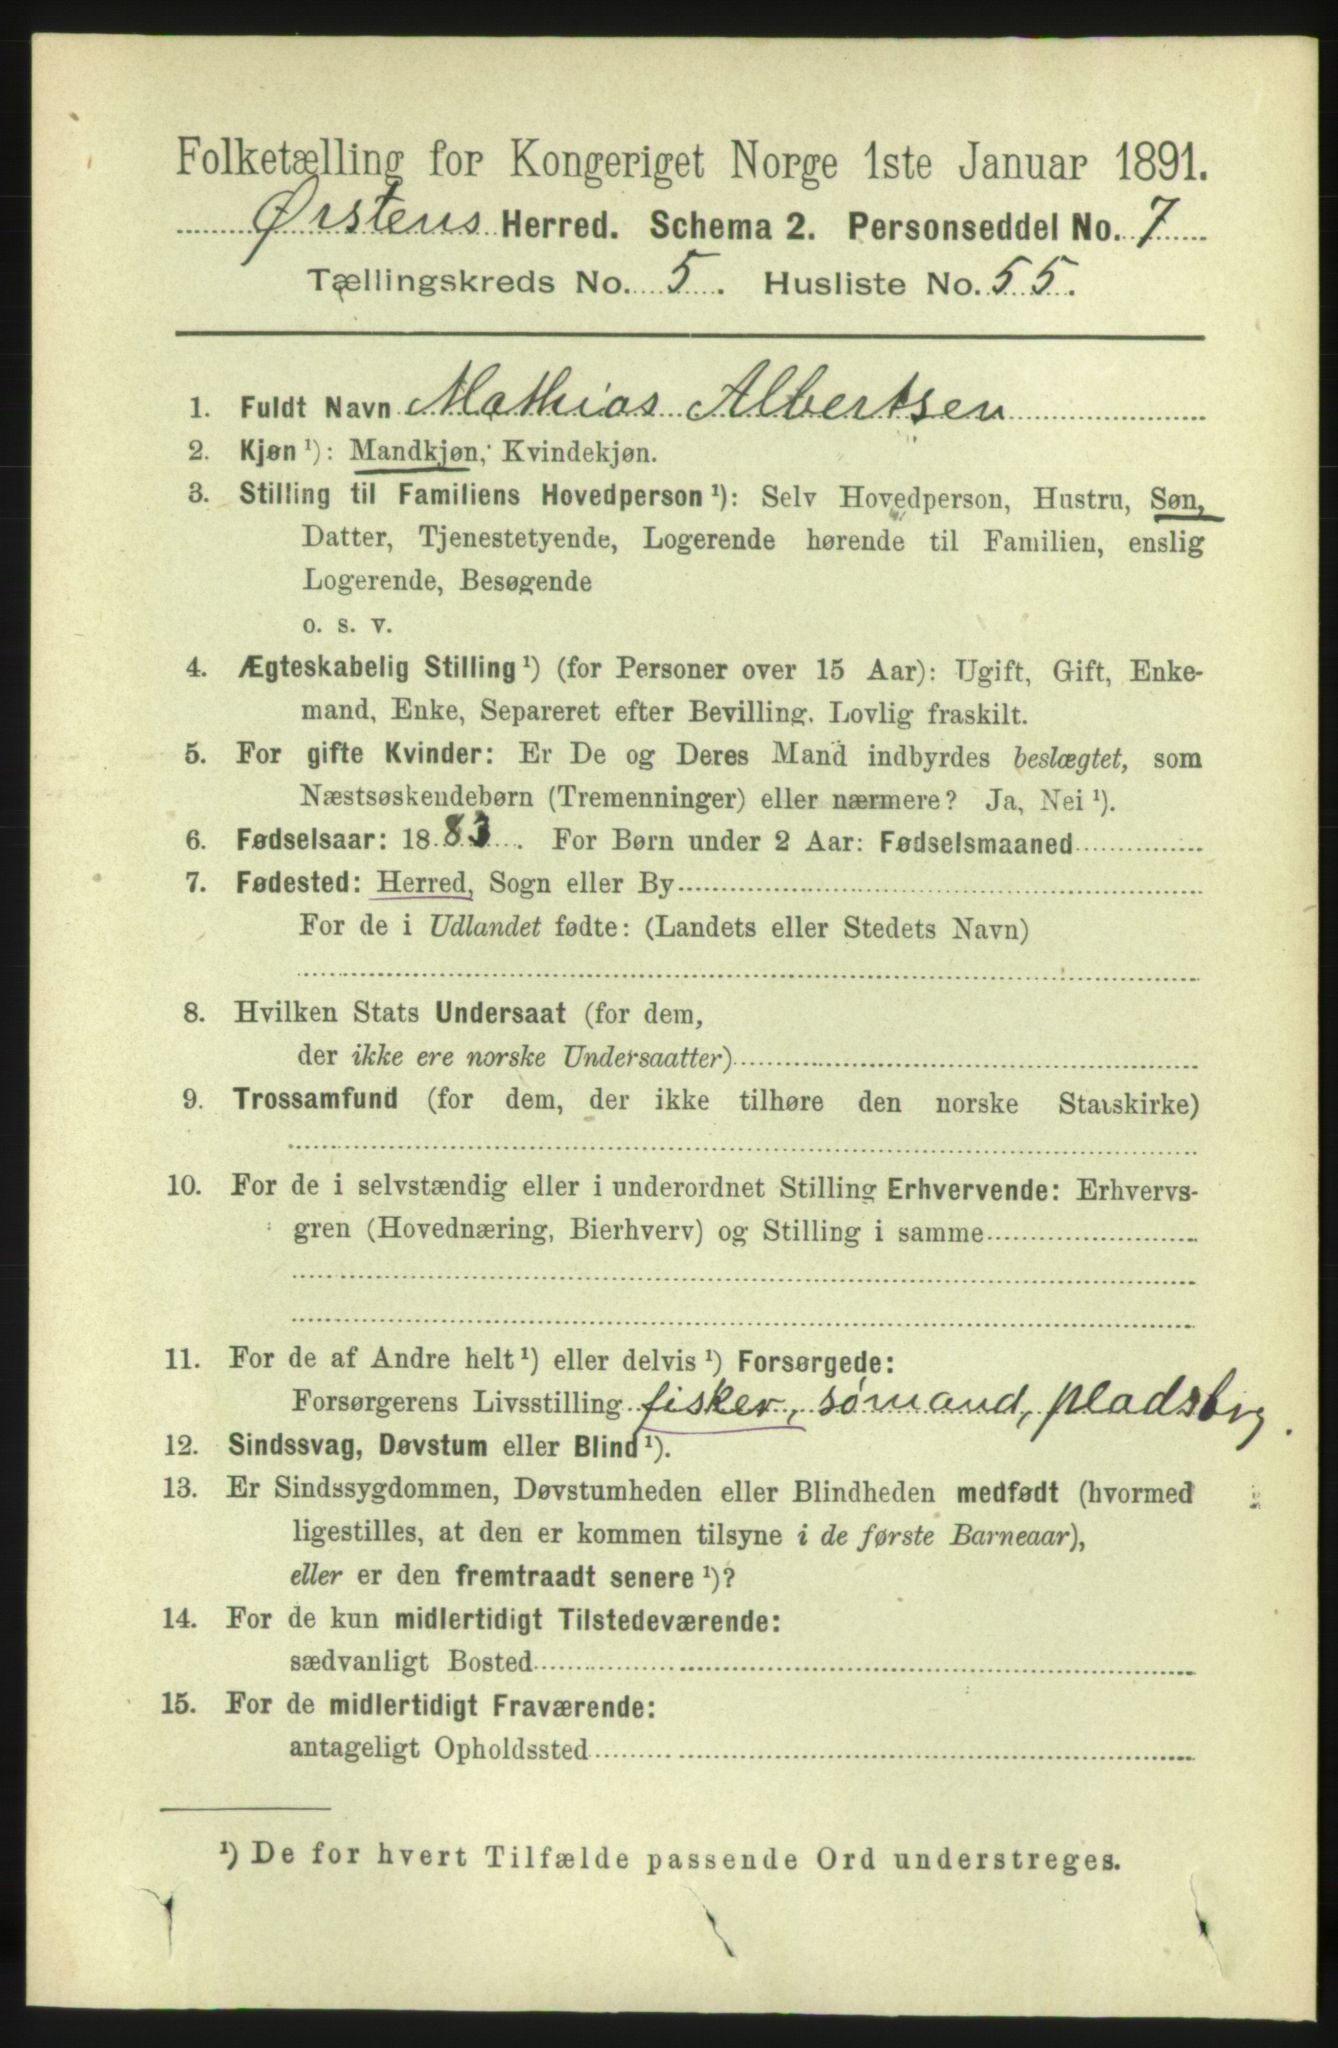 Folketælling for Kongeriget Norge 1ste Januar 1891.
Ørstens Herred. Schema 2. Personseddel No. 7
Tællingskreds No. 5. Husliste No. 55.
1. Fuldt Navn Mathias Albertsen
2. Kjøn ¹): Mandkjøn, Kvindekjøn.
3. Stilling til Familiens Hovedperson ¹): Selv Hovedperson, Hustru, Søn,
Datter, Tjenestetyende, Logerende hørende til Familien, enslig
Logerende, Besøgende
o. s. v.
4. Ægteskabelig Stilling ¹) (for Personer over 15 Aar): Ugift, Gift, Enke-
mand, Enke, Separeret efter Bevilling. Lovlig fraskilt.
5. For gifte Kvinder: Er De og Deres Mand indbyrdes beslægtet, som
Næstsøskendebørn (Tremenninger) eller nærmere? Ja, Nei ¹).
6. Fødselsaar: 1883. For Børn under 2 Aar: Fødselsmaaned
7. Fødested: Herred, Sogn eller By
For de i Udlandet fødte: (Landets eller Stedets Navn)
8. Hvilken Stats Undersaat (for dem,
der ikke ere norske Undersaatter)
9. Trossamfund (for dem, der ikke tilhøre den norske Statskirke)
10. For de i selvstændig eller i underordnet Stilling Erhvervende: Erhvervs-
gren (Hovednæring, Bierhverv) og Stilling i samme
11. For de af Andre helt ¹) eller delvis ¹) Forsørgede:
Forsørgerens Livsstilling fisker, sømand, pladsbrg.
12. Sindssvag, Døvstum eller Blind ¹).
13. Er Sindssygdommen, Døvstumheden eller Blindheden medfødt (hvormed
ligestilles, at den er kommen tilsyne i de første Barneaar),
eller er den fremtraadt senere ¹)?
14. For de kun midlertidigt Tilstedeværende:
sædvanligt Bosted
15. For de midlertidigt Fraværende:
antageligt Opholdssted
¹) De for hvert Tilfælde passende Ord understreges.